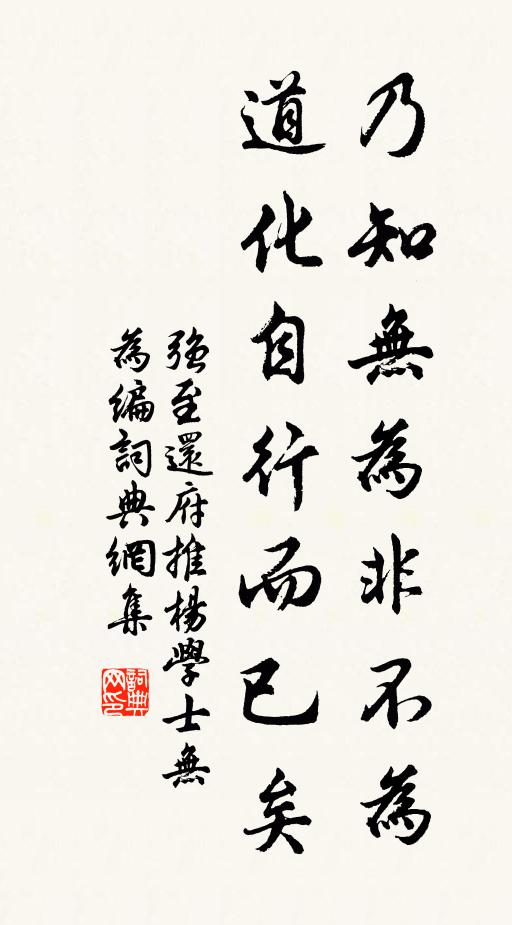 乃知無為非不為
道化自行而已矣
強至還府推楊學士無
為編詞典網集
詞典网印